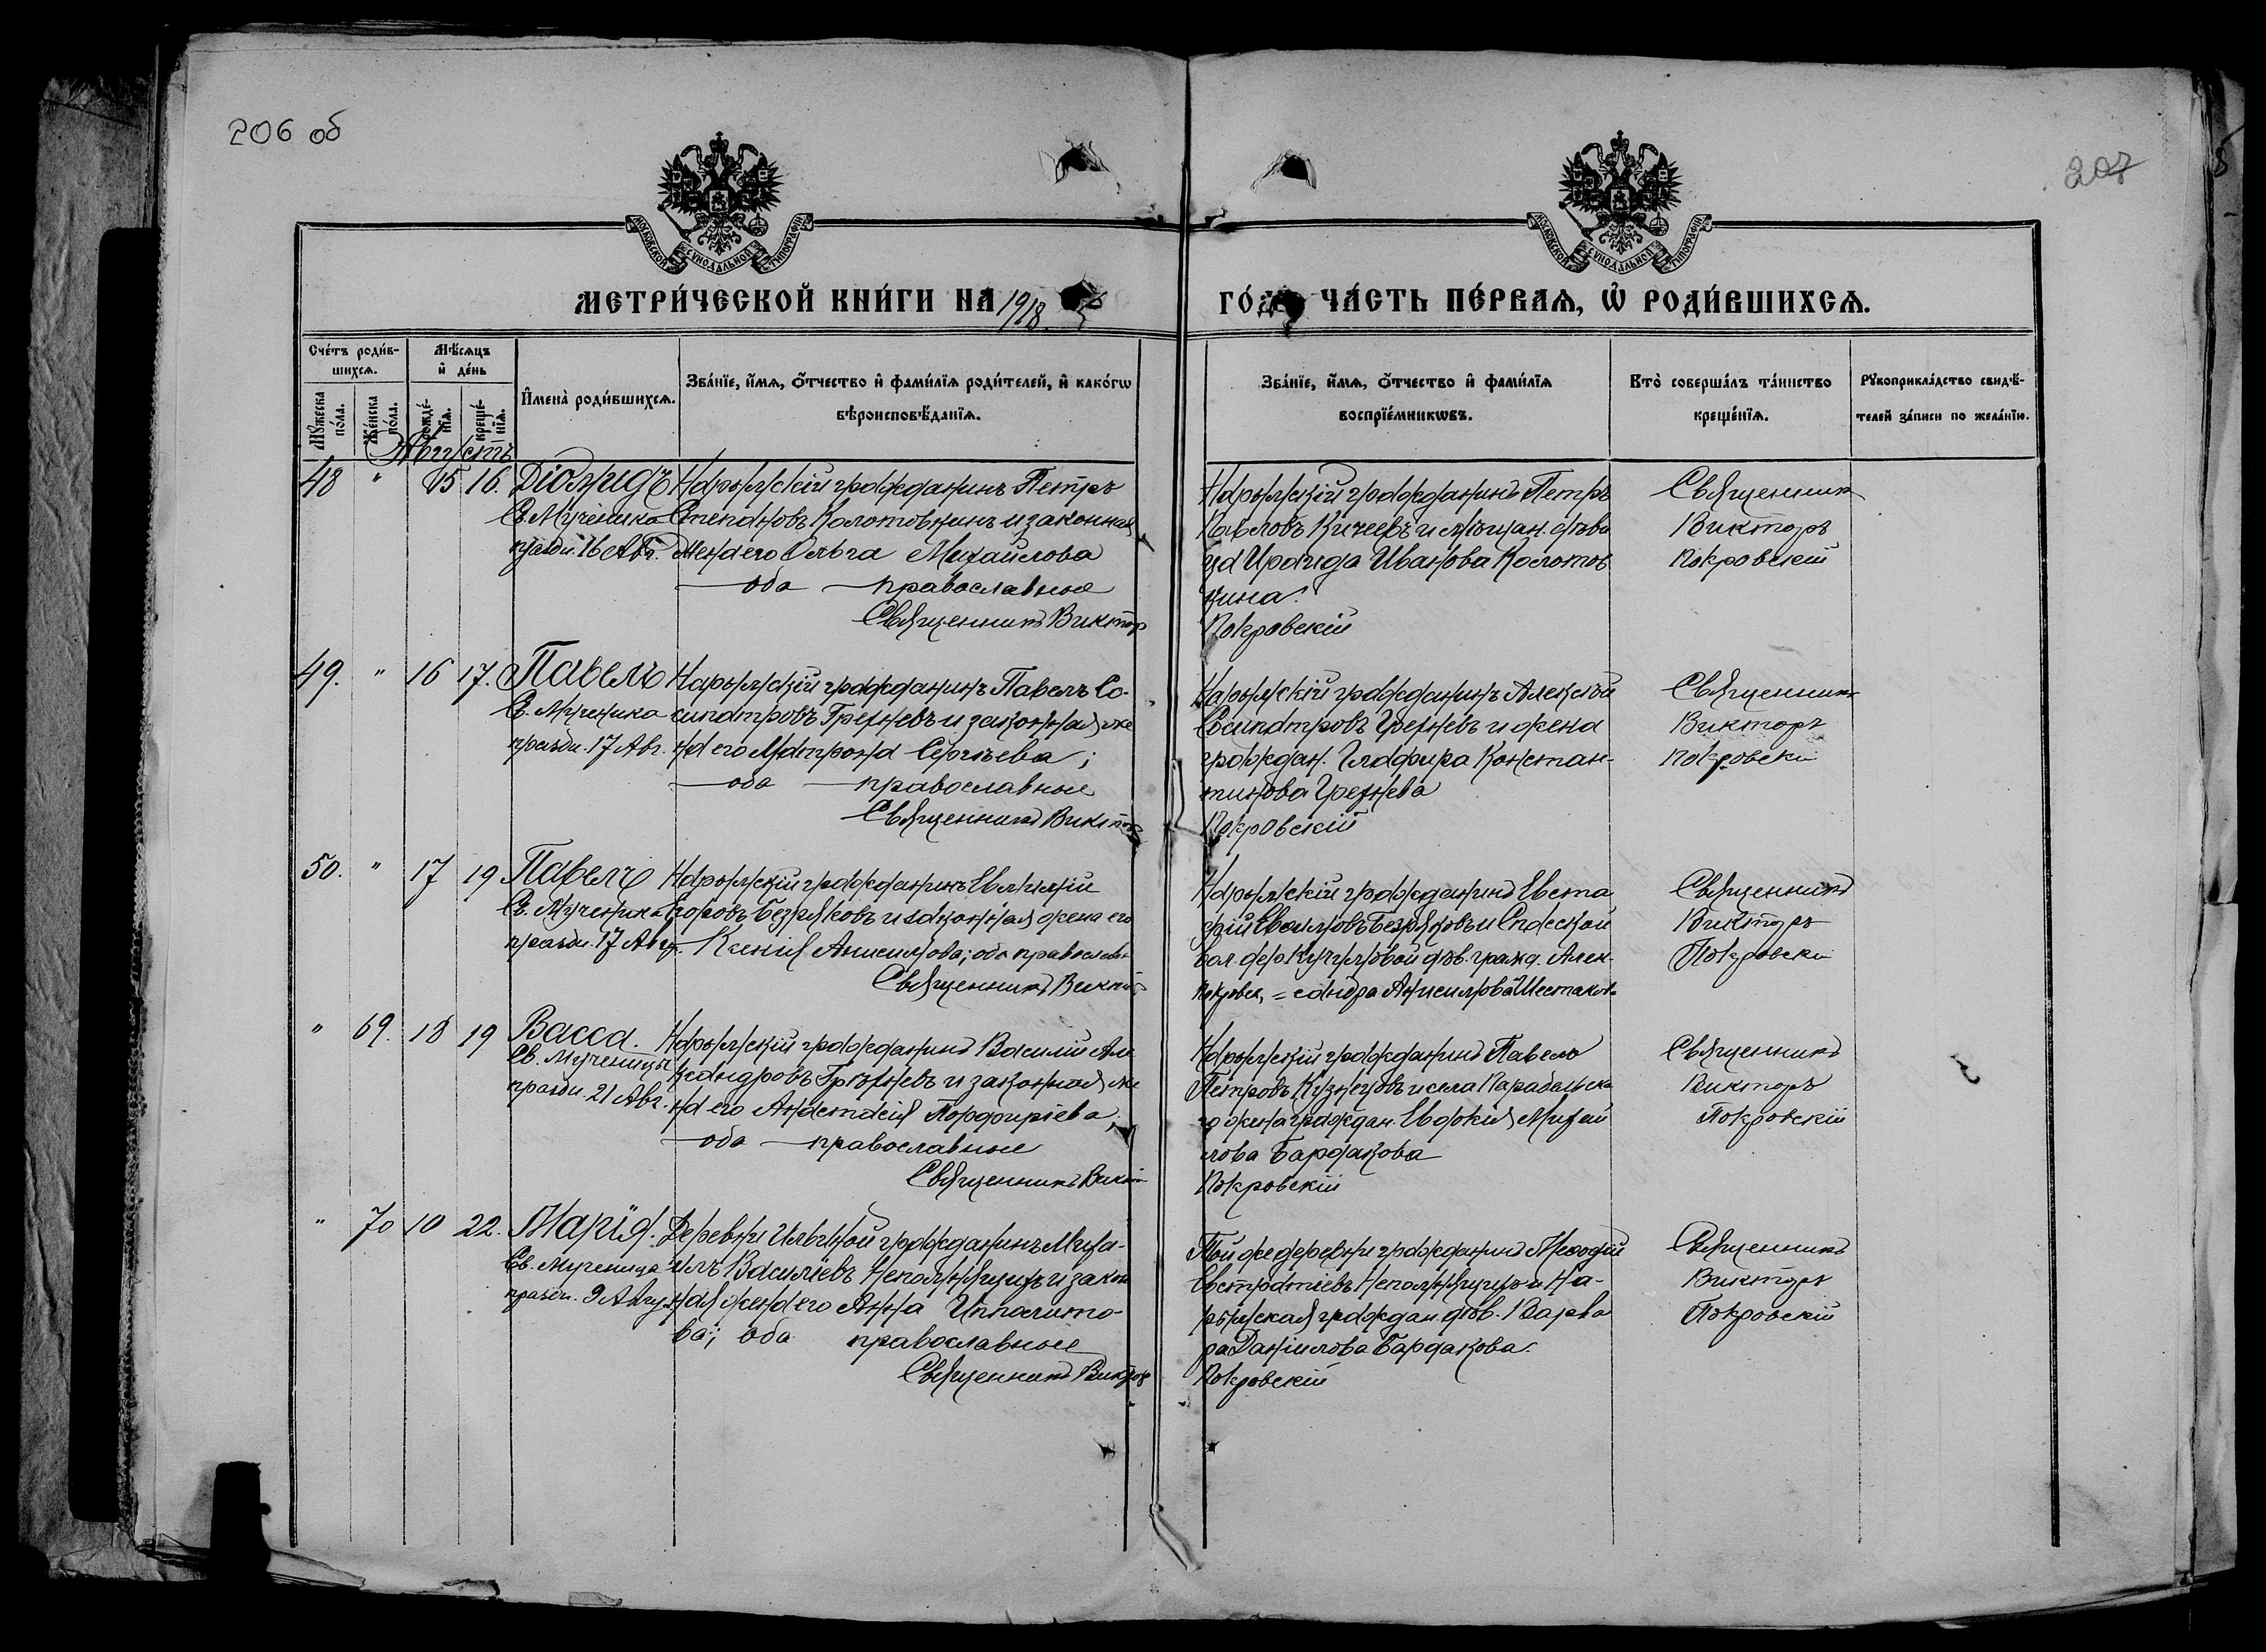 206 об
207
МОСКОВСКОЙ СУНОДАЛЬНОЙ ТИПОГРАФІИ
МОСКОВСКОЙ СУНОДАЛЬНОЙ ТИПОГРАФІИ
МЕТРИ́ЧЕСКОЙ КНИ́ГИ НА 1918
ГО́ ЧА́СТЬ ПЕ́РВАЯ, Ѡ҆ РОДИ́ВШИХСЯ.
Сче́тъ роди́в-
шихся.
Мѣ́сяцъ
и҆ де́нь
Му́жеска по́ла.
Же́нска по́ла.
рожде́-
нїя.
креще́-
нїя.
И҆мена̀ роди́вшихся.
Зва́нїе, и҆́мя, о҆́тчество и҆ фами́лїя роди́телей, и҆ како́гѡ
вѣроисповѣ́данїя.
Зва́нїе, и҆́мя, о҆́тчество и҆ фами́лїя
воспрїе́мникѡвъ.
Кто̀ соверша́лъ та́инство
креще́нїя.
Рꙋкоприкла́дство свидѣ́-
телей за́писи по жела́нїю.
Августъ
48 " 15 16. Діомидъ
Св. Мученика
праздн. 16 Авг.
Нарымскій гражданинъ Петръ
Степановъ Колотовкинъ и законная
жена его Ольга Михайлова
оба православные
Священникъ Виктор
Нарымскій гражданинъ Петръ
Павловъ Кичеевъ и мѣщан. дѣви
ца Ираида Иванова Колотов
кина.
Покровскій
Священникъ
Викторъ
Покровскій
49. " 16 17. Павелъ
Св. Мученика
праздн. 17 Авг.
Нарымскій гражданинъ Павелъ Со-
сипатровъ Грехневъ и законная же
на его Матрона Сергѣева;
оба православные
Священникъ Виктор
Нарымскій гражданинъ Алексѣй
Сосипатровъ Грехневъ и жена
граждан. Глафира Констан-
тинова Грехнева
Покровскій
Священникъ
Викторъ
Покровскі
50. " 17 19 Павелъ
Св. Мученика
праздн. 17 Авг.
Нарымскій гражданинъ
Егоровъ Безряковъ и законная жена его
Ксенія Анисимова; оба православн
Священникъ
Нарымскій гражданинъ Евста
фій Безряковъ и Спасской
вол. дер. дѣв. гражд. Алек-
= сандра Анисимова Шестаков
Покровск,
Священникъ
Викторъ
Покровскі
" 69. 18 19 Васса.
Св. Мученицы
праздн. 21 Авг.
Нарымскій гражданинъ Василій Але
ксандровъ Грѣхневъ и законная же
на его Анастасія Порфирiева;
оба православные
Священникъ
Нарымскій гражданинъ Павелъ
Петровъ Кузнецовъ и села Парабельска
го жена граждан. Евдокія Михай
лова Бардакова
Покровскій
Священникъ
Викторъ
Покровскій
" 70 10 22. Марія.
Св. Мученица
праздн. 9 Авгу.
Деревни Ильиной гражданинъ Миха-
илъ Василіевъ Непомнящихъ и закон
ная жена его Анна Ипполито-
ва; оба православные
Священникъ Виктор
Той же деревни гражданинъ Мефодій
Евстратіевъ Непомнящихъ и На-
рымская граждан. дѣв. Варва
ра Даніилова Бардакова.
Покровскій
Священникъ
Викторъ
Покровскій